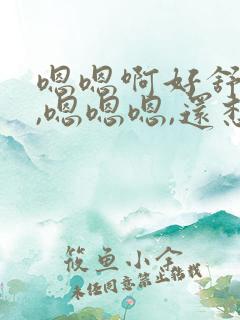 嗯嗯啊好舒
,嗯嗯嗯,還想
筱鱼小全
未经同意禁止转载